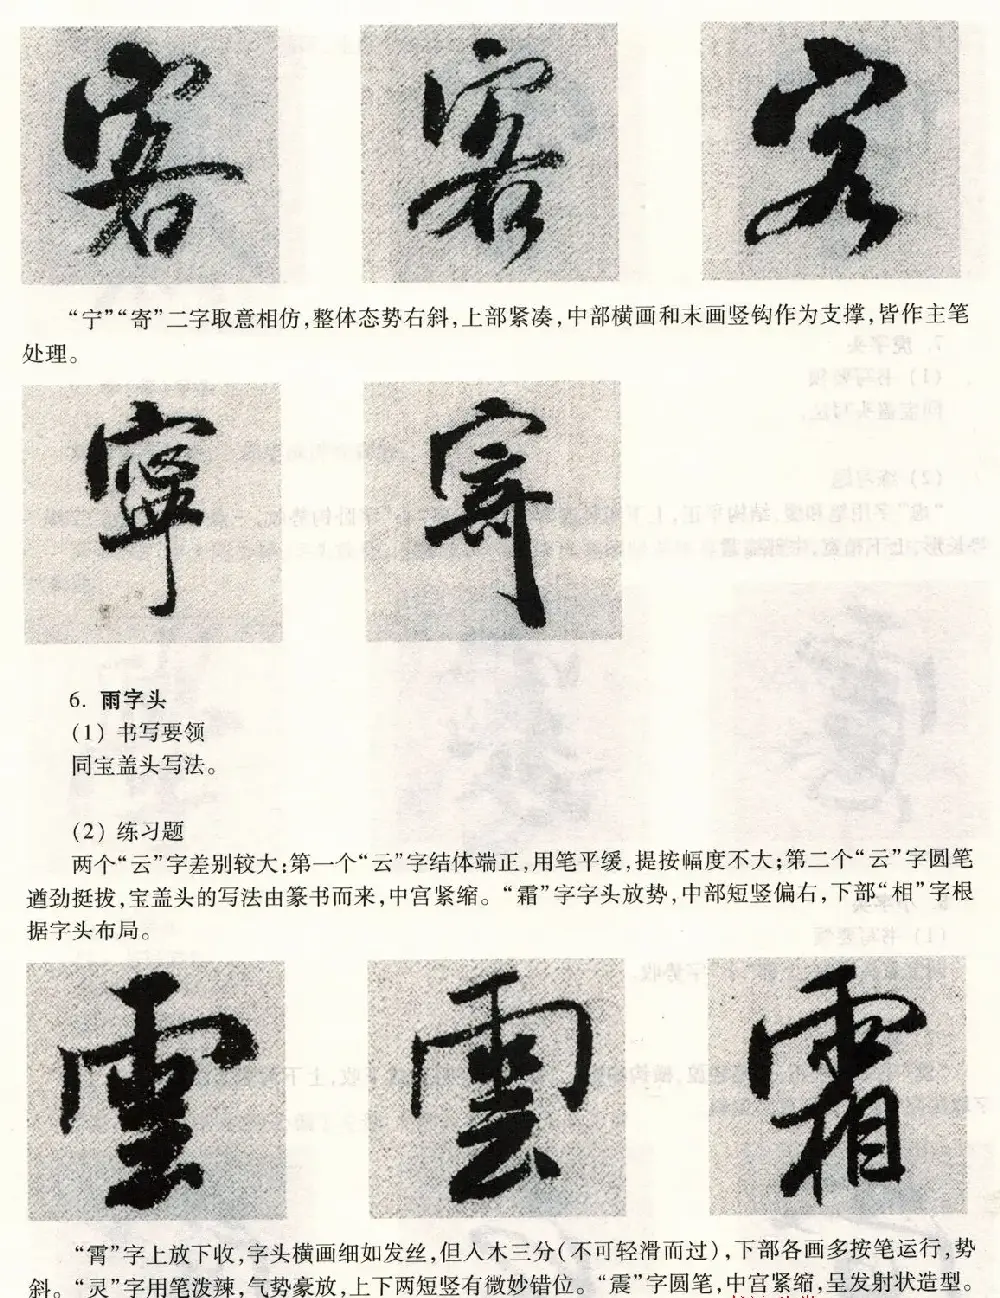 客 客 客
“宁”“寄”二字取意相仿,整体态势右斜,上部紧凑,中部横画和末画竖钩作为支撑,皆作主笔
处理。
寧 寄
6. 雨字头
(1) 书写要领
同宝盖头写法。
(2) 练习题
两个“云”字差别较大;第一个“云”字结体端正,用笔平缓,提按幅度不大;第二个“云”字圆笔
遒劲挺拔,宝盖头的写法由篆书而来,中宫紧缩。“霜”字字头放势,中部短竖偏右,下部“相”字根
据字头布局。
雲 雲 霜
“霄”字上放下收,字头横画细如发丝,但入木三分(不可轻滑而过),下部各画多按笔运行,势
斜。“灵”字用笔泼辣,气势豪放,上下两短竖有微妙错位。“震”字圆笔,中宫紧缩,呈发射状造型。